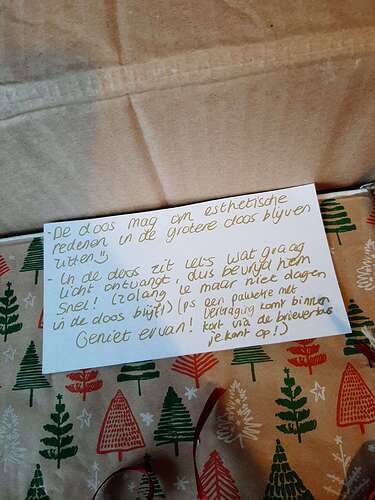 - De doos mag om esthetische
redenen in de grotere doos blijven
zitten!!
- In de doos zit iets wat graag
licht ontvangt, dus bevrijd hem
snel! (zolang ie maar niet dagen
in de doos blijft) (ps een pakketje met
vertraging komt binnen
kort via de brievenbus
je kant op!)
Geniet ervan!